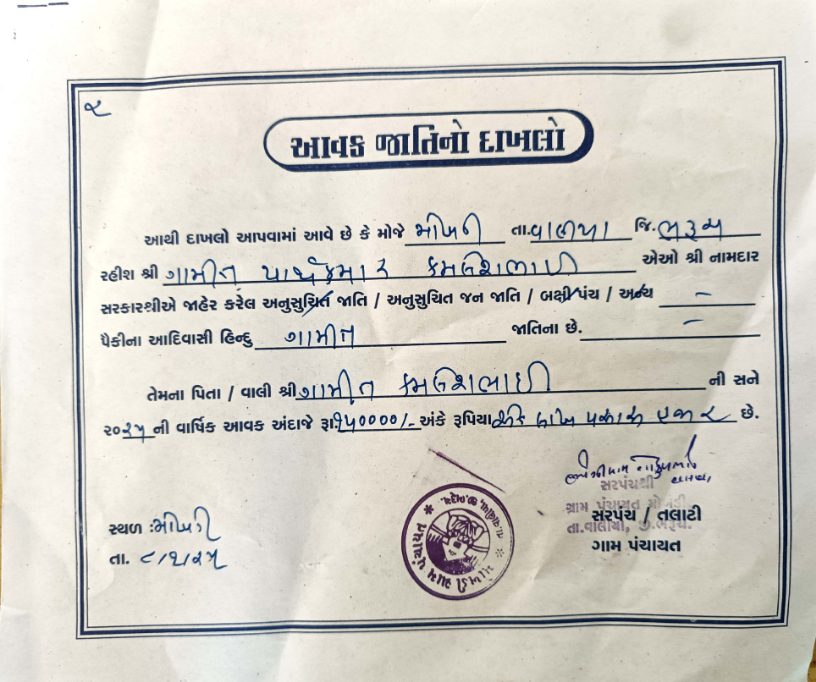 ૨
આવક જાતિનો દાખલો
આથી દાખલો આપવામાં આવે છે કે મોજે મોખડી તા. વાલીયા જિ. ભરૂચ
રહીશ શ્રી ગામીત પાર્થકુમાર કમલેશભાઈ એઓ શ્રી નામદાર
સરકારશ્રીએ જાહેર કરેલ અનુસુચિત જાતિ / અનુસુચિત જન જાતિ / બક્ષીપંચ / અન્ય –
પૈકીના આદિવાસી હિન્દુ ગામીત જાતિના છે. –
તેમના પિતા / વાલી શ્રી ગામીત કમલેશભાઈ ની સને
૨૦૨૫ ની વાર્ષિક આવક અંદાજે રૂા ૧૫૦૦૦૦/- અંકે રૂપિયા એક લાખ પચાસ હજાર છે.
સરપંચશ્રી
ગ્રામ પંચાયત મોખડી
તા.વાલીયા, જી.ભરૂચ.
સરપંચ / તલાટી
ગામ પંચાયત
સ્થળ : મોખડી
તા.
મોખડી ગ્રામ પંચાયત
તા. વાલીયા, જી. ભરૂચ.